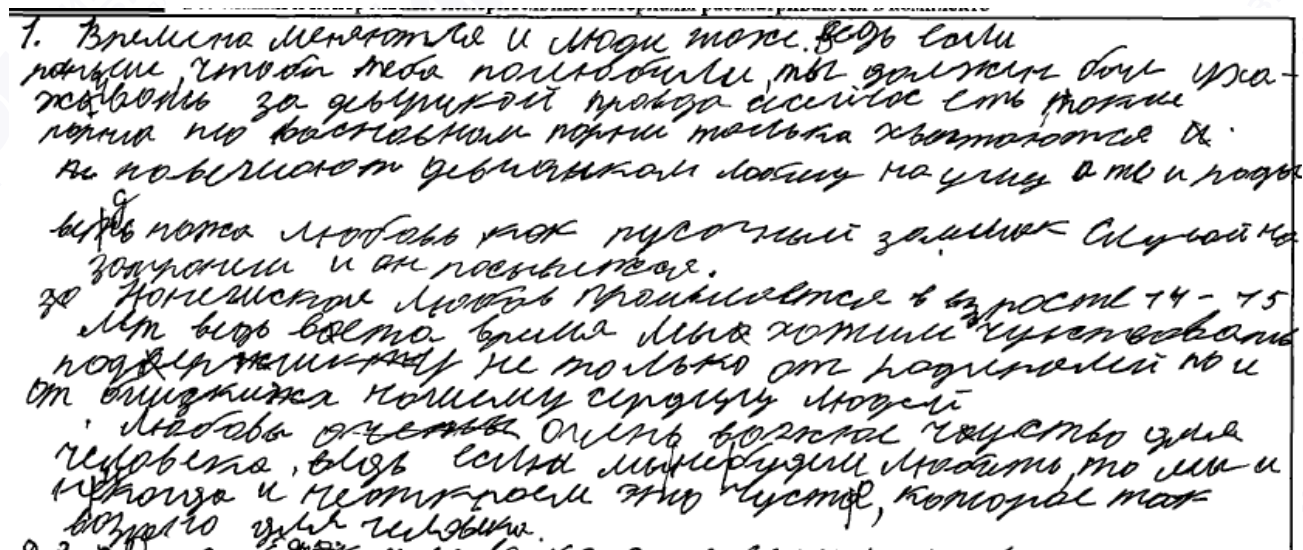 1. Времена меняются и люди тоже. Ведь если
раньше, чтоби тебя полюбили, ты должен был уха-
живать за девушкой правда сейчас есть такие
парни но восновном парни толька хвастаются и
не девчанкам а те и рады
ведь пока любовь как пусочный замиок Случайно
затронеш и он
за любовь проивляется в взросте 14 - 15
лет ведь воето время мыа хотим чуствовать
не только от родителей но и
от нашему сердцу людей
Любовь очень важное чауство для
человека, ведь если мы небудем любить, то мы и
некогда и неоткроем это чуство, которое так
важно для человека.